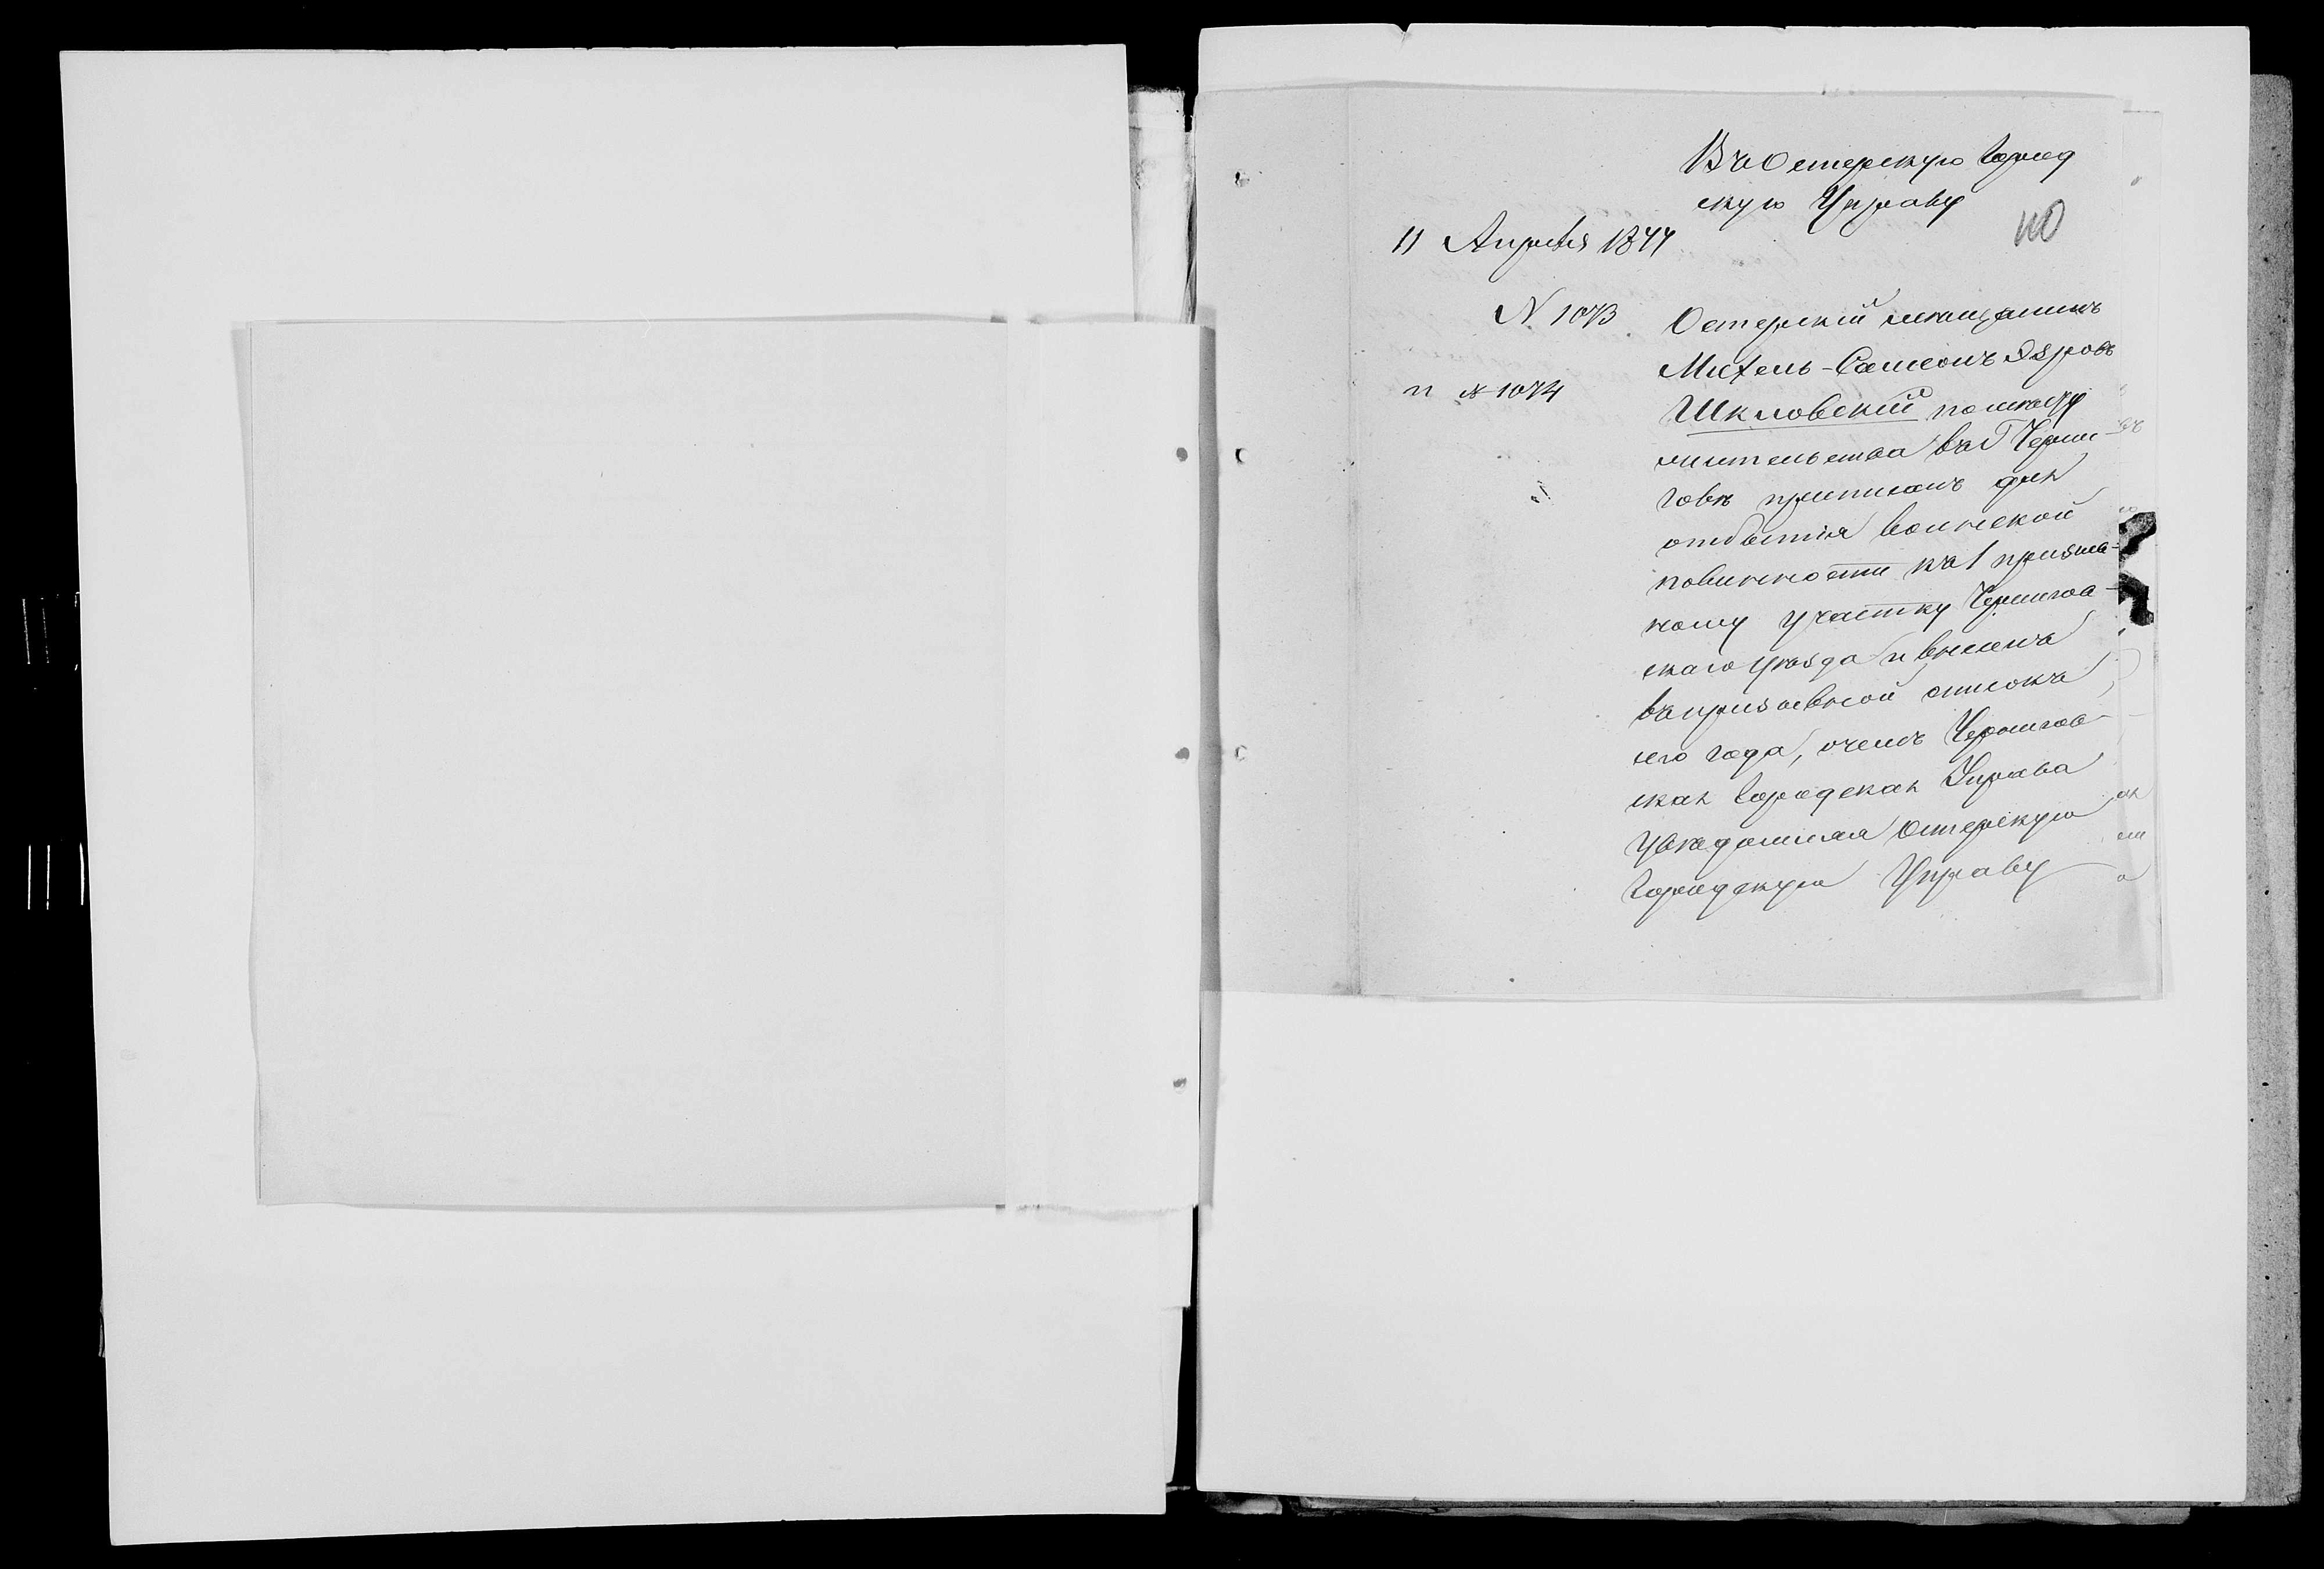 Въ Остерскую Город
скую Управу
110
11 Апреля 1877
N 1073
и № 1074
Остерскій мещанинъ
Михель-Самсонъ
Шкловскій по месту
жительства въ г. Черни
говѣ приписанъ для
отбытія воинской
повинности къ 1 призыв-
ному участку Чернигов-
скаго уѣзда и внесенъ
въ призывной списокъ
сего года, о чемъ Чернигов-
ская Городская Управа
уведомляла Остерскую
Городскую Управу